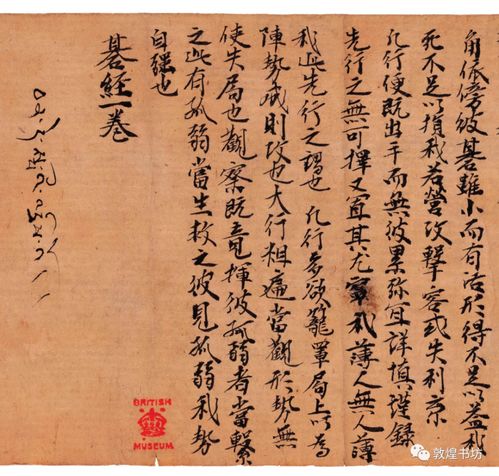 角依傍彼碁雖小而有活形得不足以益我
死不足以損我若營攻擊容或失利亦
凡行便既出手而無彼累弥冝詳慎謹錄
先行之無可擇又冝其尤審我薄人無人薄
我此先行之謂也凡行多欲籠罩局上以為
陣勢成則攻也大行粗遍當觀形勢無
使失局也觀察既竟揮彼孤弱者當繫
之此有孤弱當生救之彼見孤弱我勢
自强也
碁經一卷
BRITISH
MUSEUM
敦煌书坊